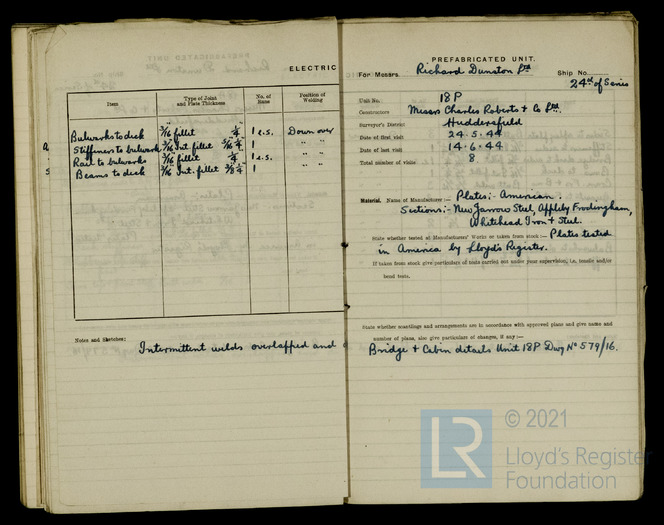 ELECTRIC
Item
Type of Joint and Plate Thickness
No. of Runs
Position of Welding
Bulworks to deck 3/16 fillet 1/4 1 e.s. Down over
Stiffeners to bulwork 3/16 Int. fillet 3/16 1/4 1 " "
Rail to bulworks 3/16 fillet 1/4 1 e.s. " "
Beams to deck 3/16 Int. fillet 3/8 1/4 1 " "
Notes and Sketches: Intermittent welds overlapped and
PREFABRICATED UNIT.
For Messrs Richard Dunston Ltd Ship No.
24th of Series
Unit No. 18P
Constructors Messrs Charles Roberts & Co Ltd.
Surveyor's District Huddersfield
Date of first visit 24.5.44
Date of last visit 14.6.44
Total number of visits 8.
Material. Name of Manufacturer:— Plates:- American.
Sections:- New Jarrow Steel, Appleby Frodingham,
Whitehead Iron & Steel.
State whether tested at Manufacturers' Works or taken from stock:— Plates tested
in America by Lloyd's Register.
If taken from stock give particulars of tests carried out under your supervision, i.e. tensile and/or
bend tests.
State whether scantlings and arrangements are in accordance with approved plans and give name and
number of plans, also give particulars of changes, if any:—
Bridge & Cabin details Unit 18P Dwg No 579/16.
LR
© 2021
Lloyd's Register
Foundation